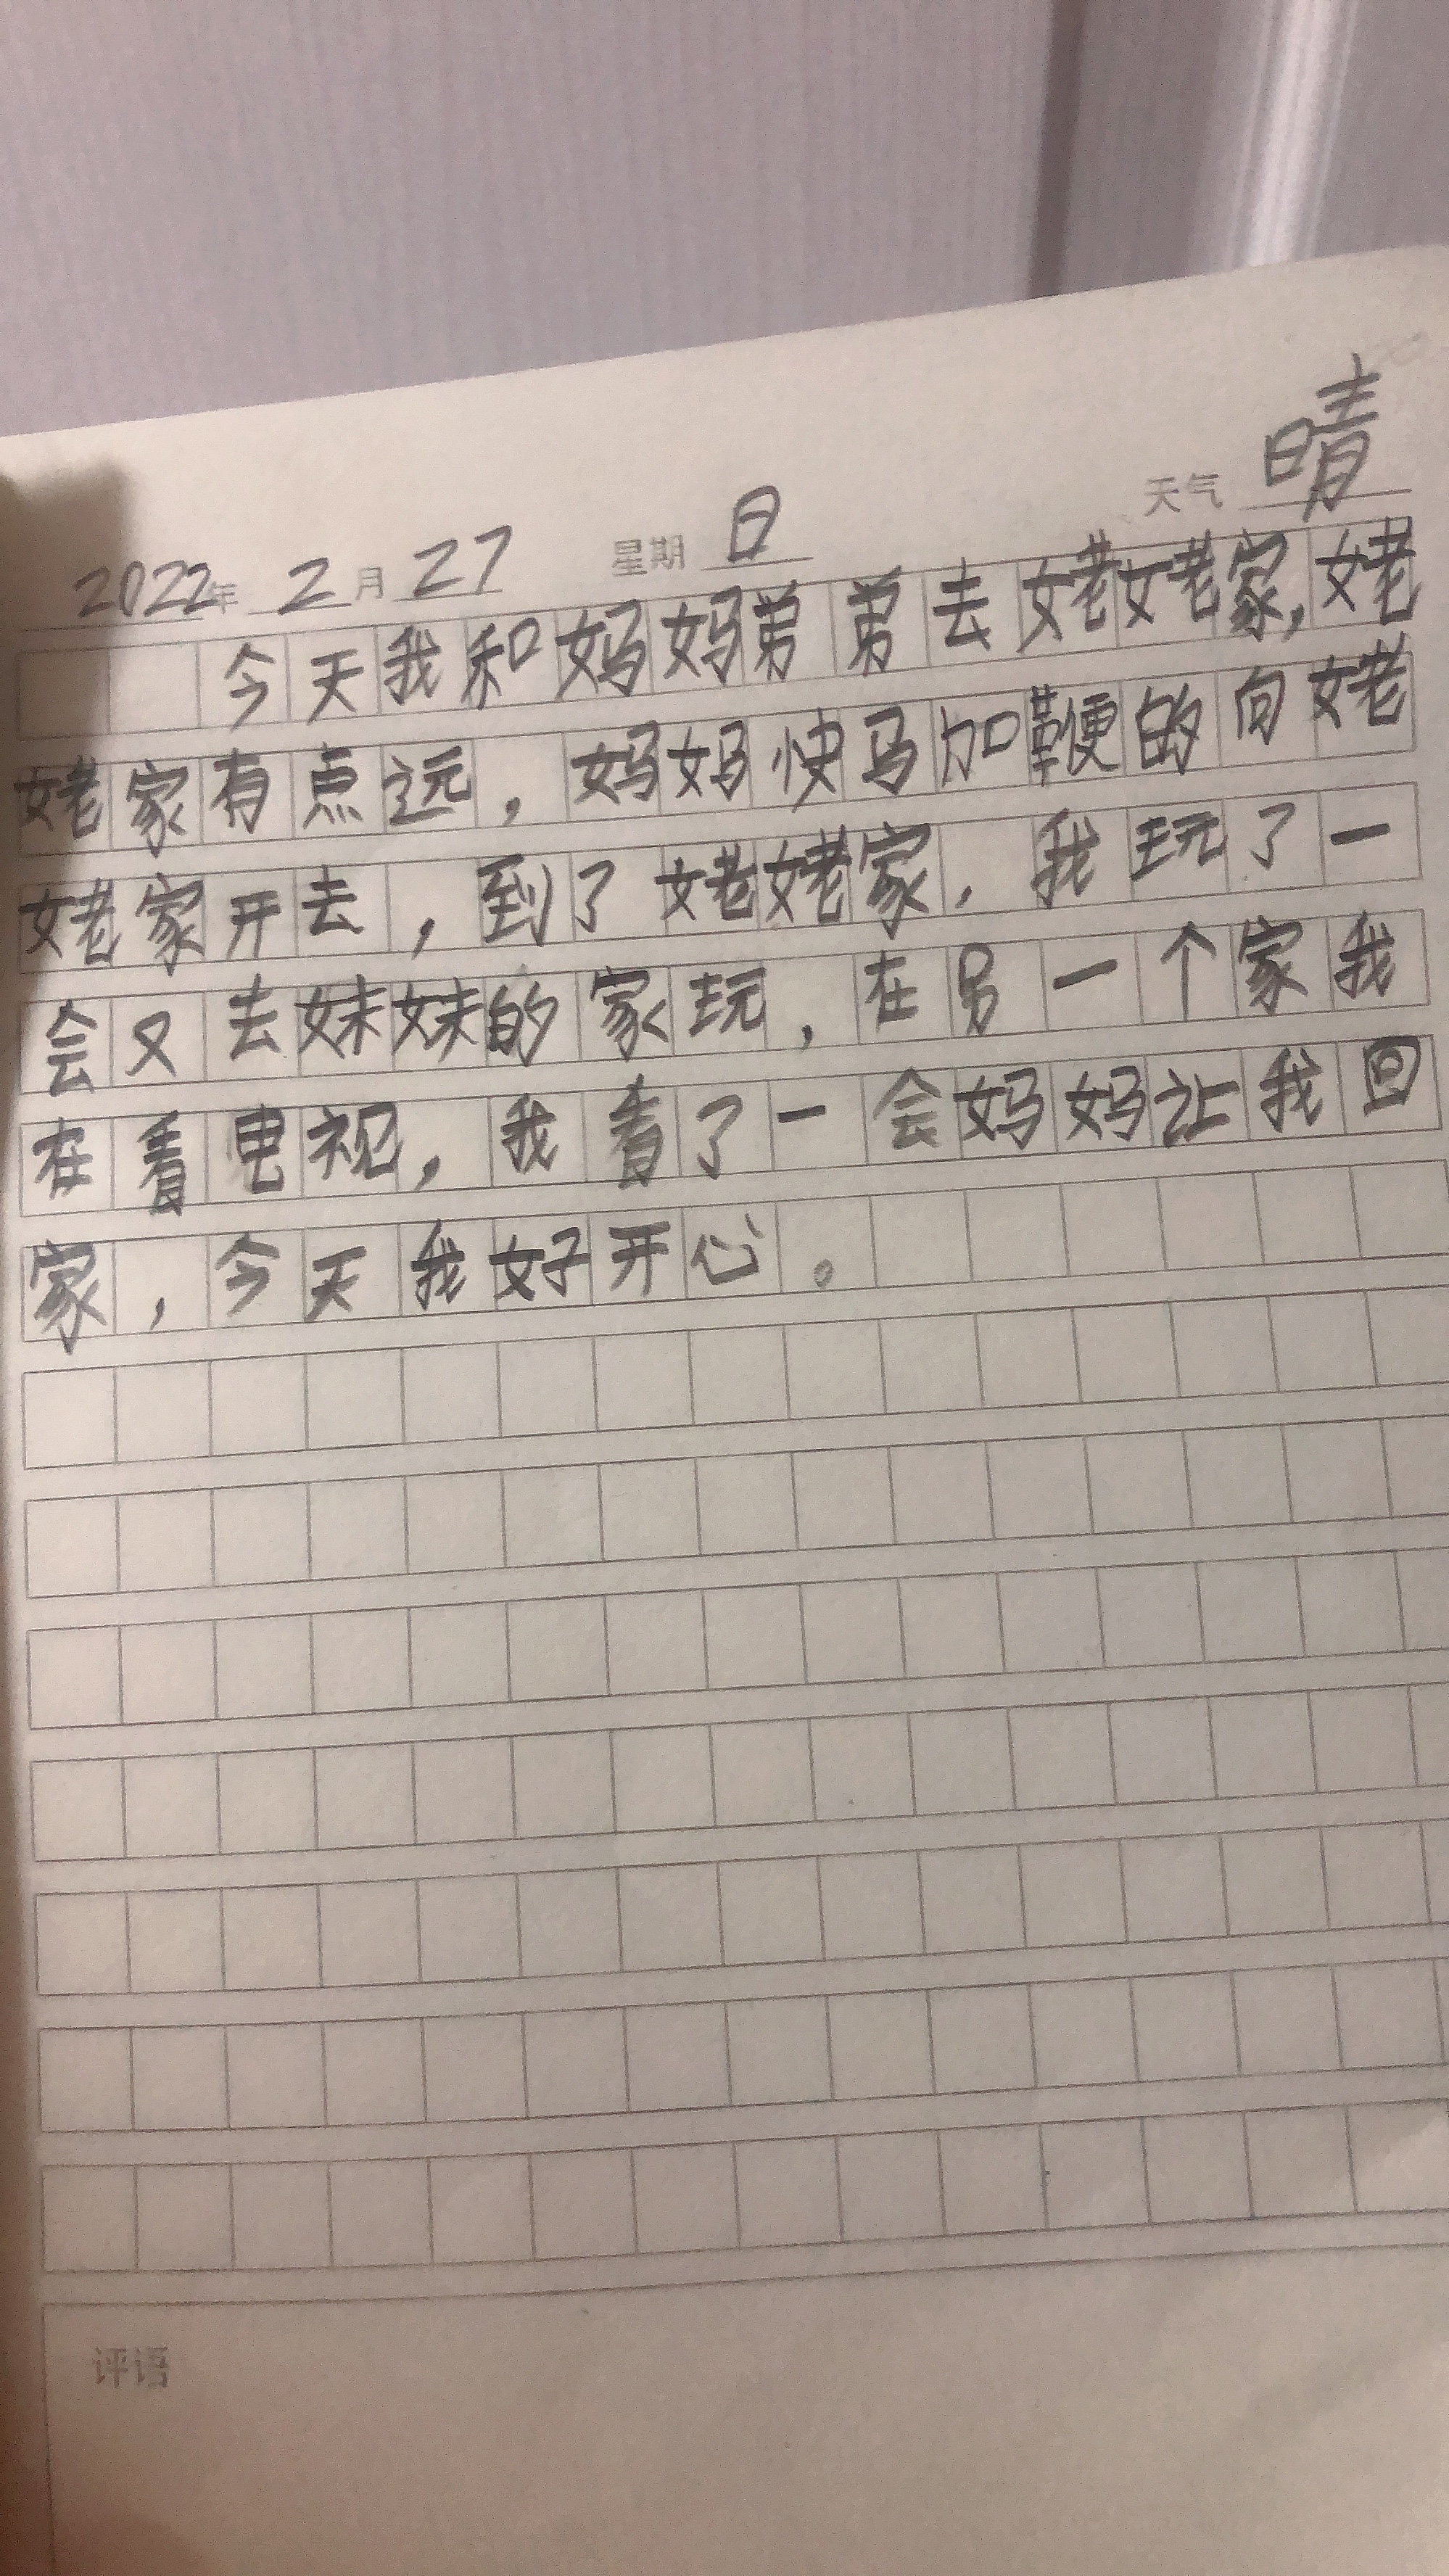 2022年 2月 27 星期 日 天气 晴
今天我和妈妈弟弟去姥姥家,姥
姥家有点远,妈妈快马加鞭的向姥
姥家开去,到了姥姥家,我玩了一
会又去妹妹的家玩,在另一个家我
在看电视,我看了一会妈妈让我回
家,今天我好开心。
评语